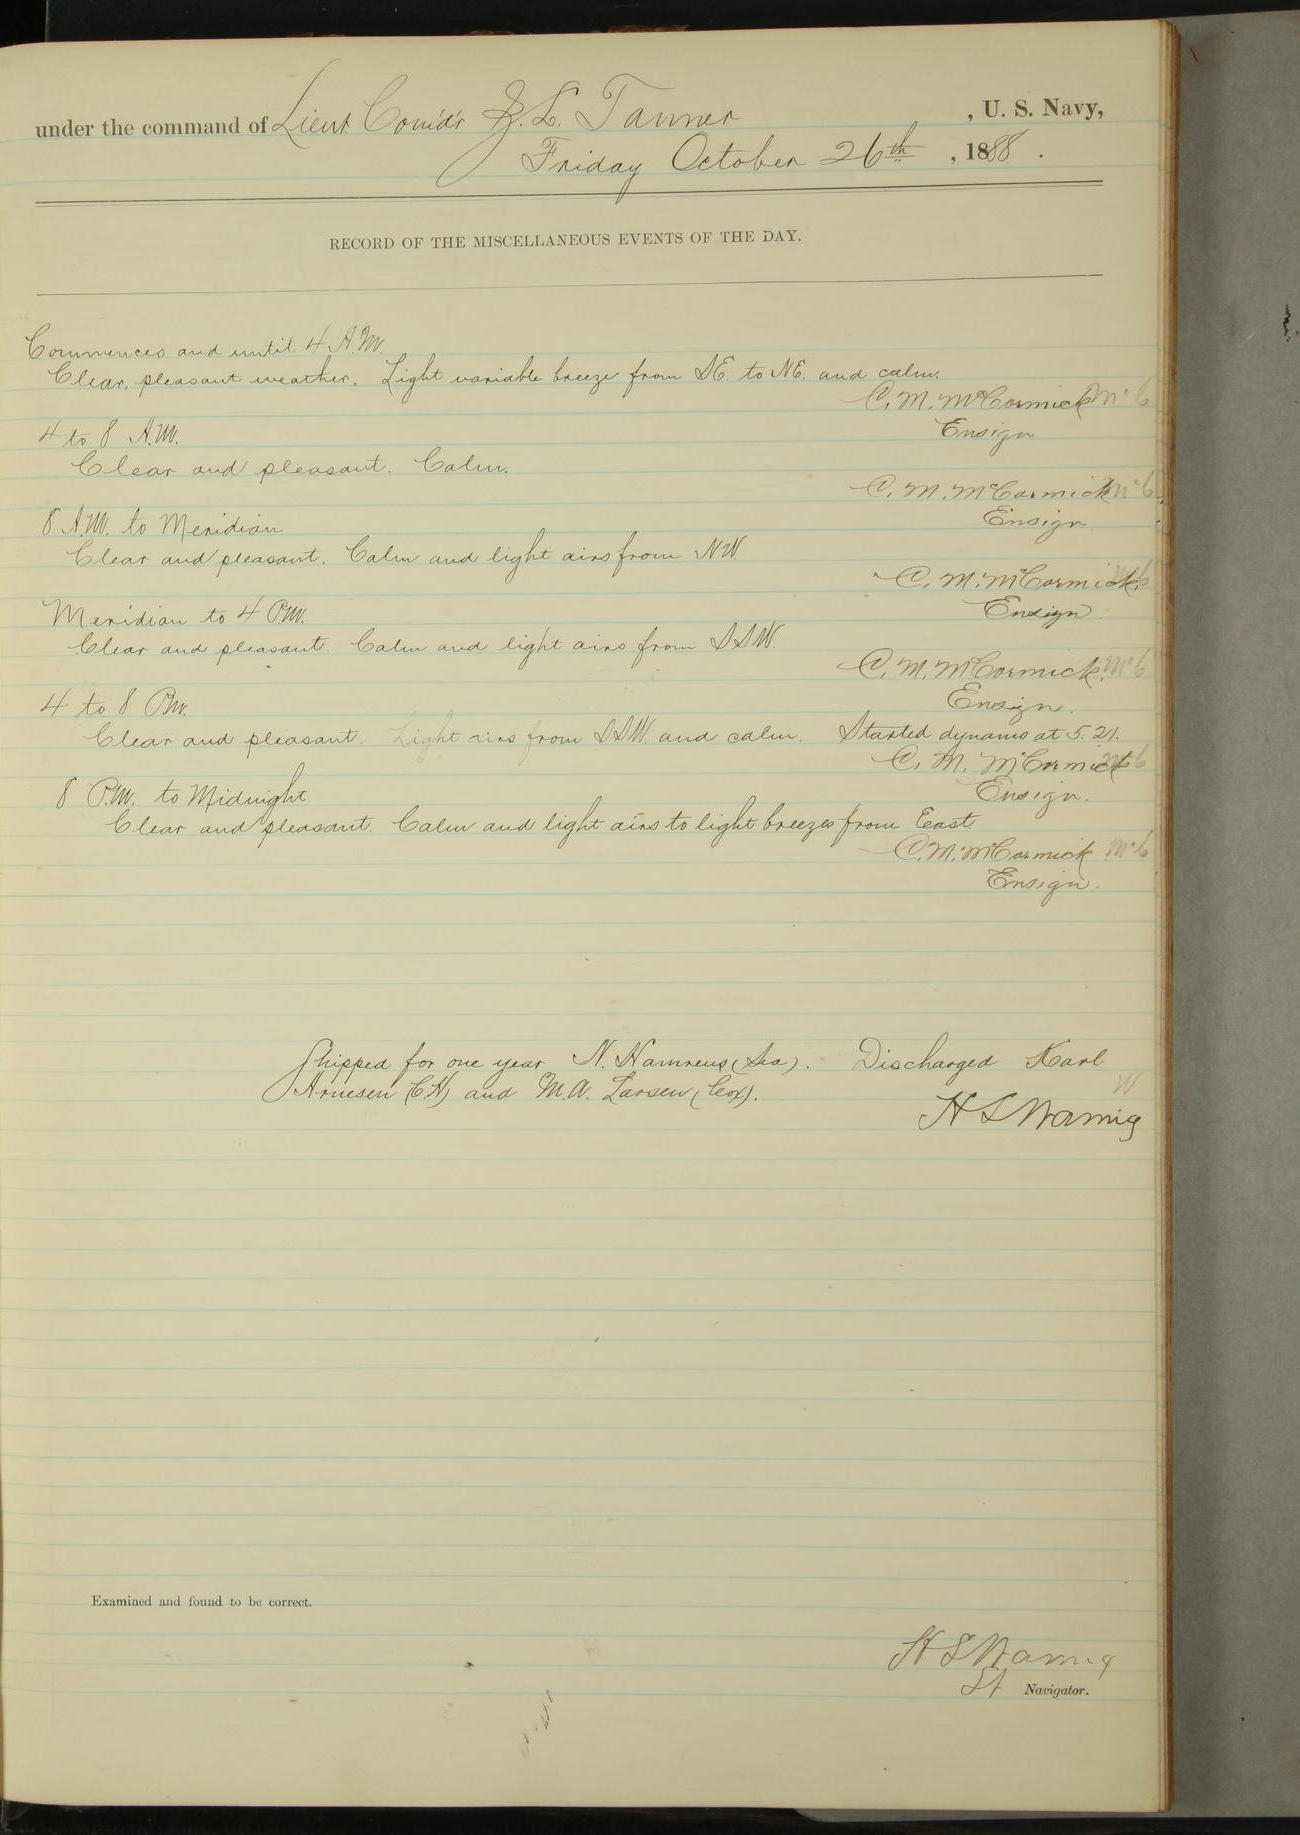 under the command of Lieut Comd'r Z. L. Tanner, U. S. Navy,
Friday October 26th, 1888.
RECORD OF THE MISCELLANEOUS EVENTS OF THE DAY.
Commences and until 4 A.M.
Clear, pleasant weather. Light variable breeze from SE. to NE. and calm.
C. M. McCormick McC
Ensign
4 to 8 A.M.
Clear and pleasant. Calm.
C. M. McCormick McC
Ensign
8 A.M. to Meridian
Clear and pleasant. Calm and light airs from NW
C. M. McCormick McC
Ensign
Meridian to 4 P.M.
Clear and pleasant. Calm and light airs from SSW.
C. M. McCormick. McC
Ensign.
4 to 8 P.M.
Clear and pleasant. Light airs from SSW. and calm. Started dynamo at 5.21.
C. M. McCormick McC
Ensign.
8 P.M. to Midnight
Clear and pleasant. Calm and light airs to light breezes from East.
C. M. McCormick McC
Ensign.
Shipped for one year N. (Sea). Discharged Karl
Arnesen (C.H) and M.A. Larsen (Cox).
W
H S Waring
Examined and found to be correct.
H S Waring
Lt Navigator.